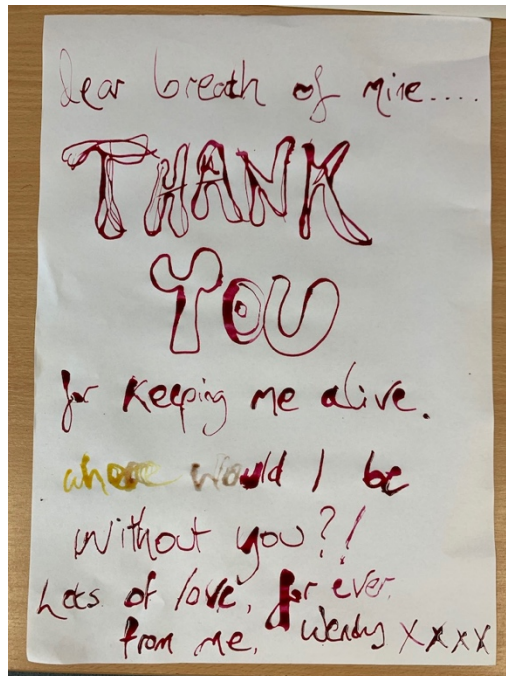 Dear breath of mine.....
THANK
YOU
for keeping me alive.
where would I be
without you?!
Lots of love, for ever.
from me, Wendy xxxx